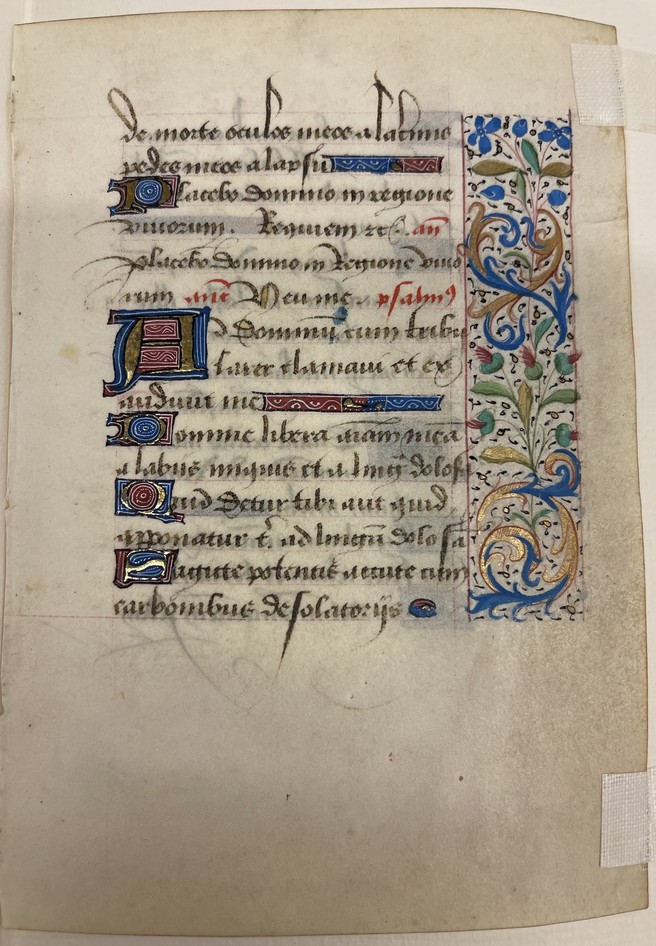 de morte oculos meos a lacrimis
pedes meos a lapsu
Placebo domino in regione
vivorum. Requiem etc. an
Placebo domino in Regione vivo
rum ant Heu me. psalmꝰ
AD Dominū cum tribu
larer clamavi et ex
audivit me
Domine libera aīam mea
a labiis iniquis et a lingᷓ dolosa
Quid Detur tibi aut quid
apponatur t̄. ad linguā dolosā
Sagitte potentis acute cum
carbonibus desolatorijs